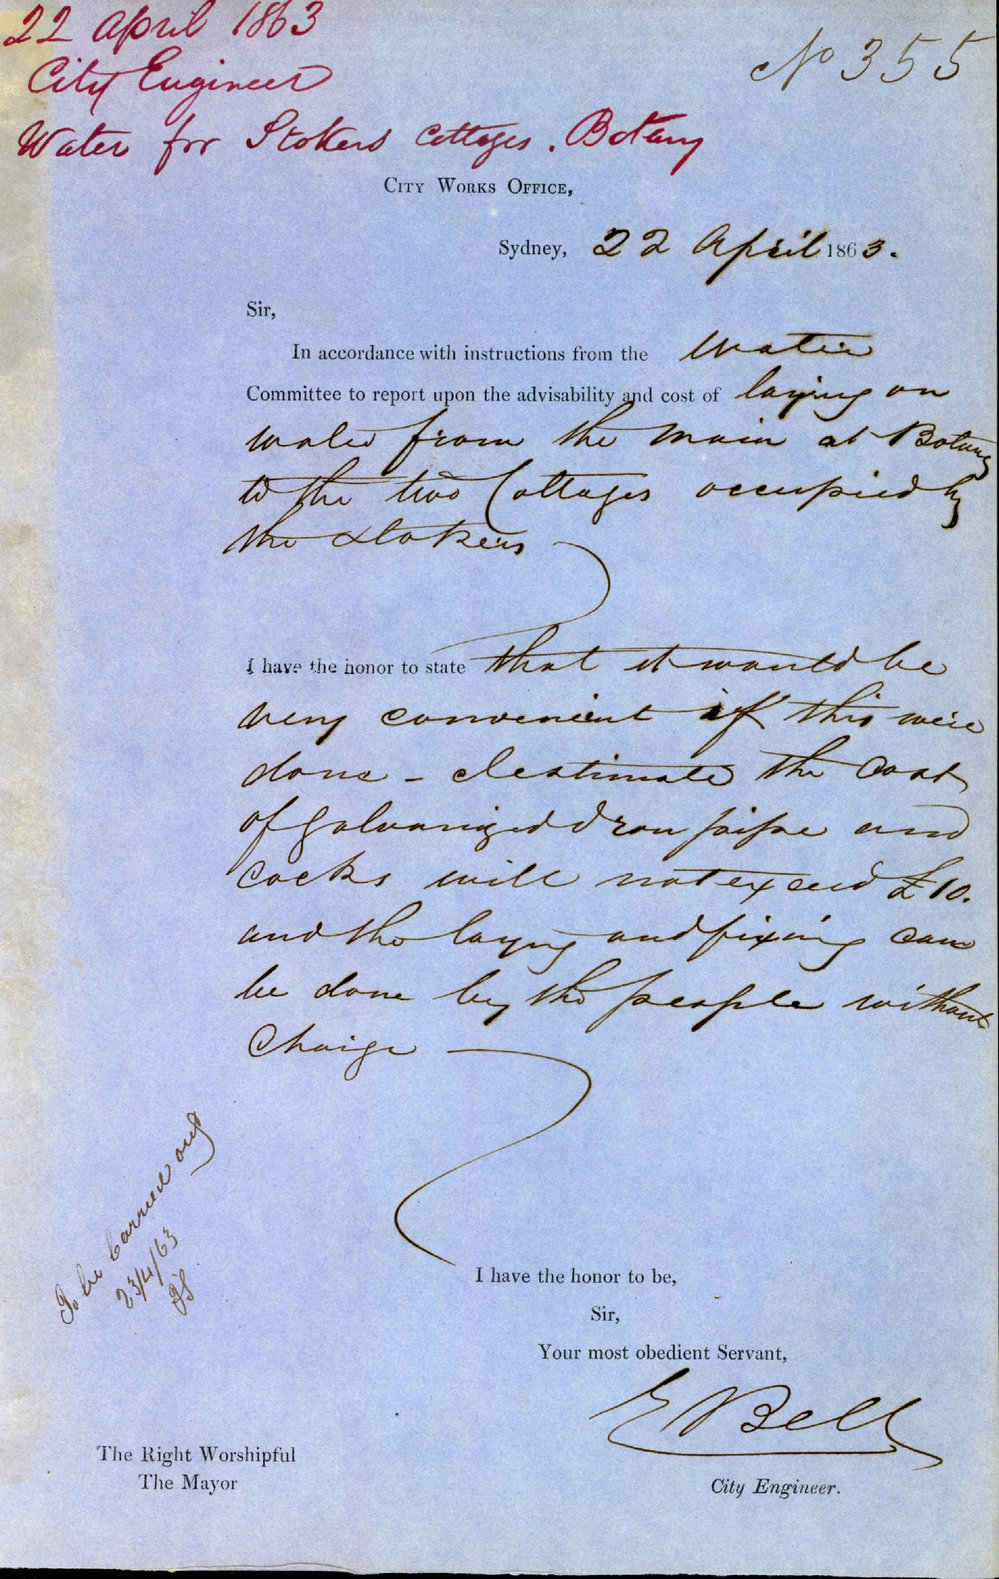 22 April 1863
No 355
City Engineer
Water for Stokers Cottages. Botany
City Works Office,
Sydney, 22 April 1863.
Sir,
In accordance with instructions from the Water
Committee to report upon the advisability and cost of laying on
water from the main at Botany
to the two Cottages occupied by
the Stokers
I have the honor to state that it would be
very convenient if this were
done - I estimate the cost
of Galvanized Iron pipe and
cocks will not exceed £10.
and the laying and fixing can
be done by the people without
charge
To be Carried out
23/4/63
I have the honor to be,
Sir,
Your most obedient Servant,
E Bell
City Engineer.
The Right Worshipful
The Mayor